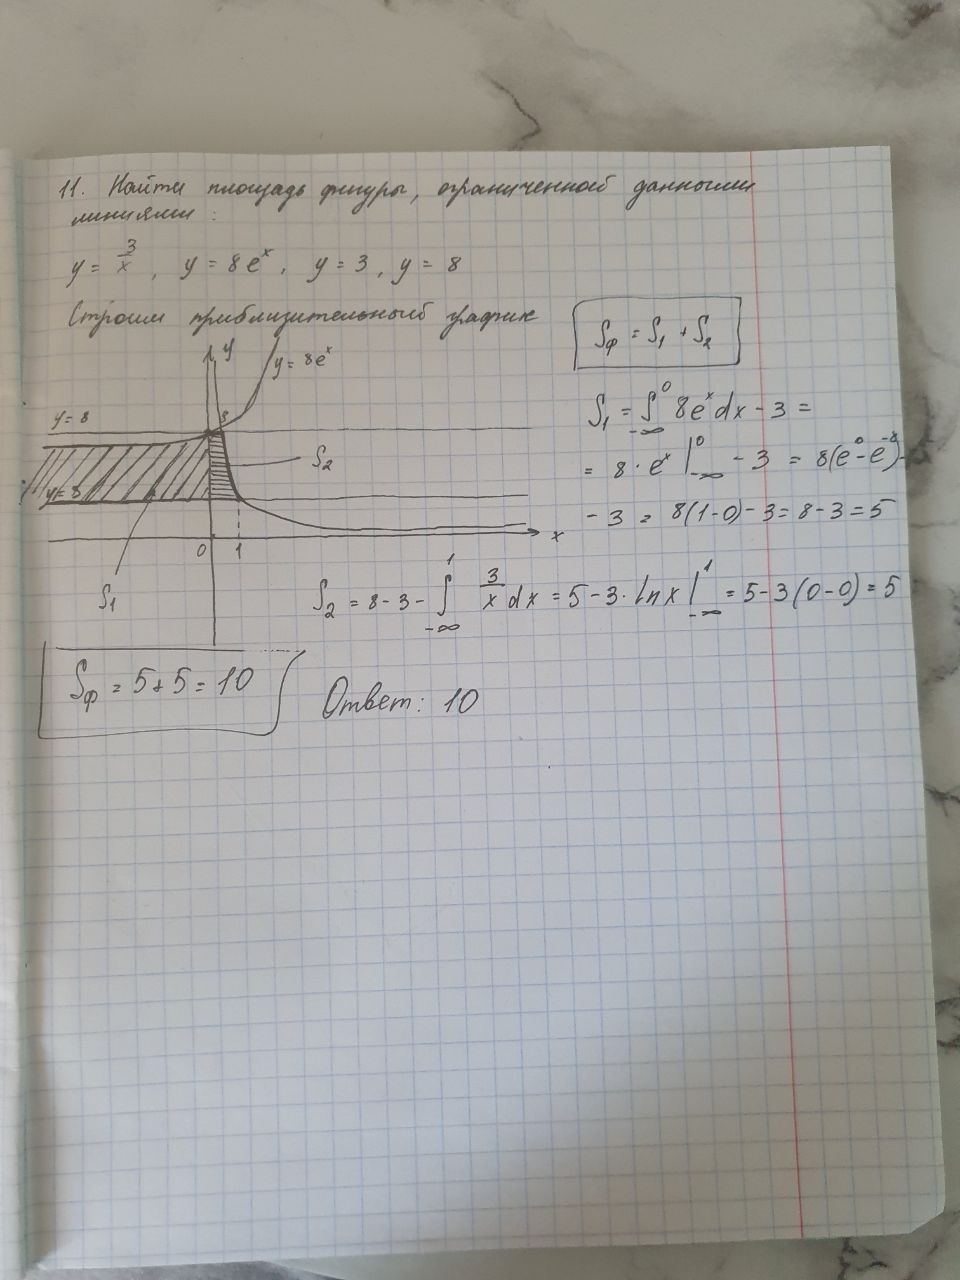 11. Найти площадь фигуры, ограниченной данными
линиями:
y = 3/x, y = 8e^x, y = 3, y = 8
Строим приблизительный график
Sф = S₁ + S₂
y
y = 8e^x
y = 8
8
S₂
y = 3
0
1
x
S₁
S₁ = ∫_{-∞}^{0} 8e^x dx - 3 =
= 8 · e^x |_{-∞}^{0} - 3 = 8(e^0 - e^{-∞}) -
- 3 = 8(1-0) - 3 = 8 - 3 = 5
S₂ = 8 - 3 - ∫_{-∞}^{1} 3/x dx = 5 - 3 · ln x |_{-∞}^{1} = 5 - 3(0-0) = 5
Sф = 5 + 5 = 10
Ответ: 10